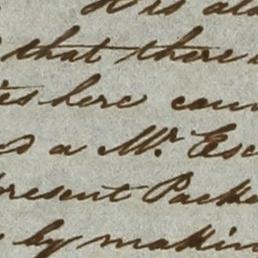 It is al
that there
es here can
d a Mr. Esc
present Packe
by makin